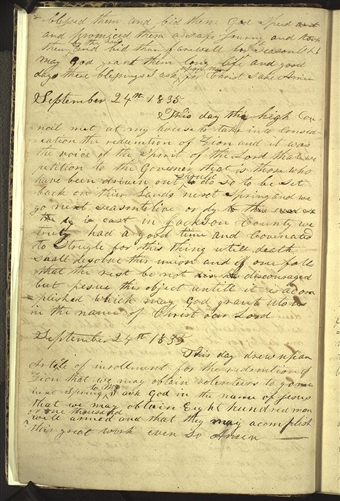 blessed them and bid them God speed and
and promised them a safe journy and took
them by the hand and bid them farewell for a season Oh
may God grant them long life and good
days these blessings I ask for Christ Sake Amen
September 24th 1835
This day the high Cou
ncil met at my house to take into consid
eration the redemtion of Zion and it was
the voice of the Spirit of the Lord that we
petition to the Governer that is those who
have been driven out to do so to be set
back on their Lands next Spring and we
go next season to live or dy
in Jackson County we
truly had a good time and Covinated
to strugle for this thing utill death
shall desolve this union and if one falls
that the rest be not discouraged
but pesue this object untill it is acom
plished which may God grant u
in the name of Christ our Lord
September 24th 1835
This day drew up an
Article of inrollment for the redemtion of
Zion that we may obtain volenteers to go
next Spring I ask God in the name of Jesus
that we may obtain Eight hundred men
or one thousand
well armed and that they may acomplish
this great work even so Amen